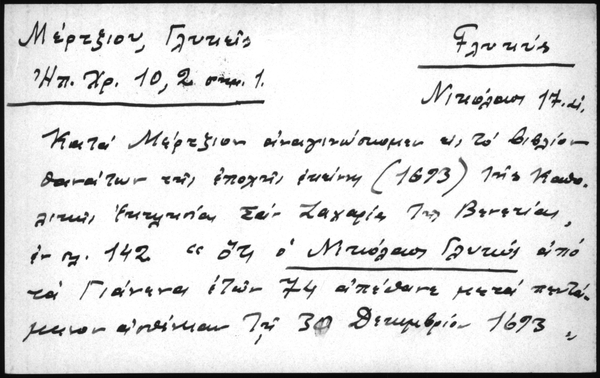 Μέρτζιου, Γλυκεῖς
Γλυκύς
Ἠπ. Χρ. 10, 2 σημ. 1.
Νικόλαος 17. αἰ.
Κατά Μέρτζιον ἀναγινώσκομεν εἰς τό βιβλίον
θανάτων τῆς ἐποχῆς ἐκείνης (1693) τῆς Καθο-
λικῆς Ἐκκλησίας Σάν Ζαχαρία τῆς Βενετίας,
ἐν σελ. 142 " ὅτι ὁ Νικόλαος Γλυκύς ἀπό
τά Γιάνενα ἐτῶν 74 ἀπέθανε μετά πεντά-
μηνον ἀσθένειαν τῇ 30 Δεκεμβρίου 1693 "